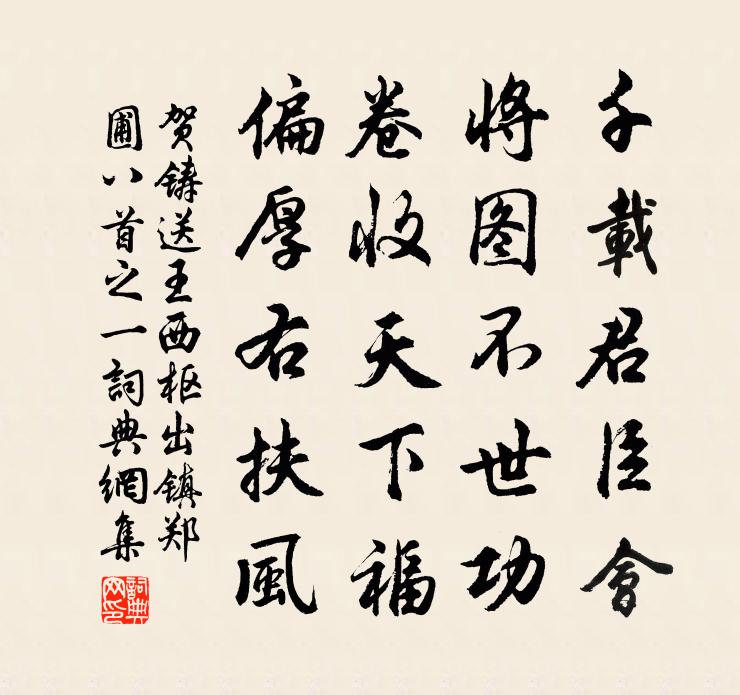 千載君臣會
將图不世功
卷收天下福
偏厚右扶風
贺鑄送王西枢出镇郑
圃八首之一詞典網集
詞典
网印